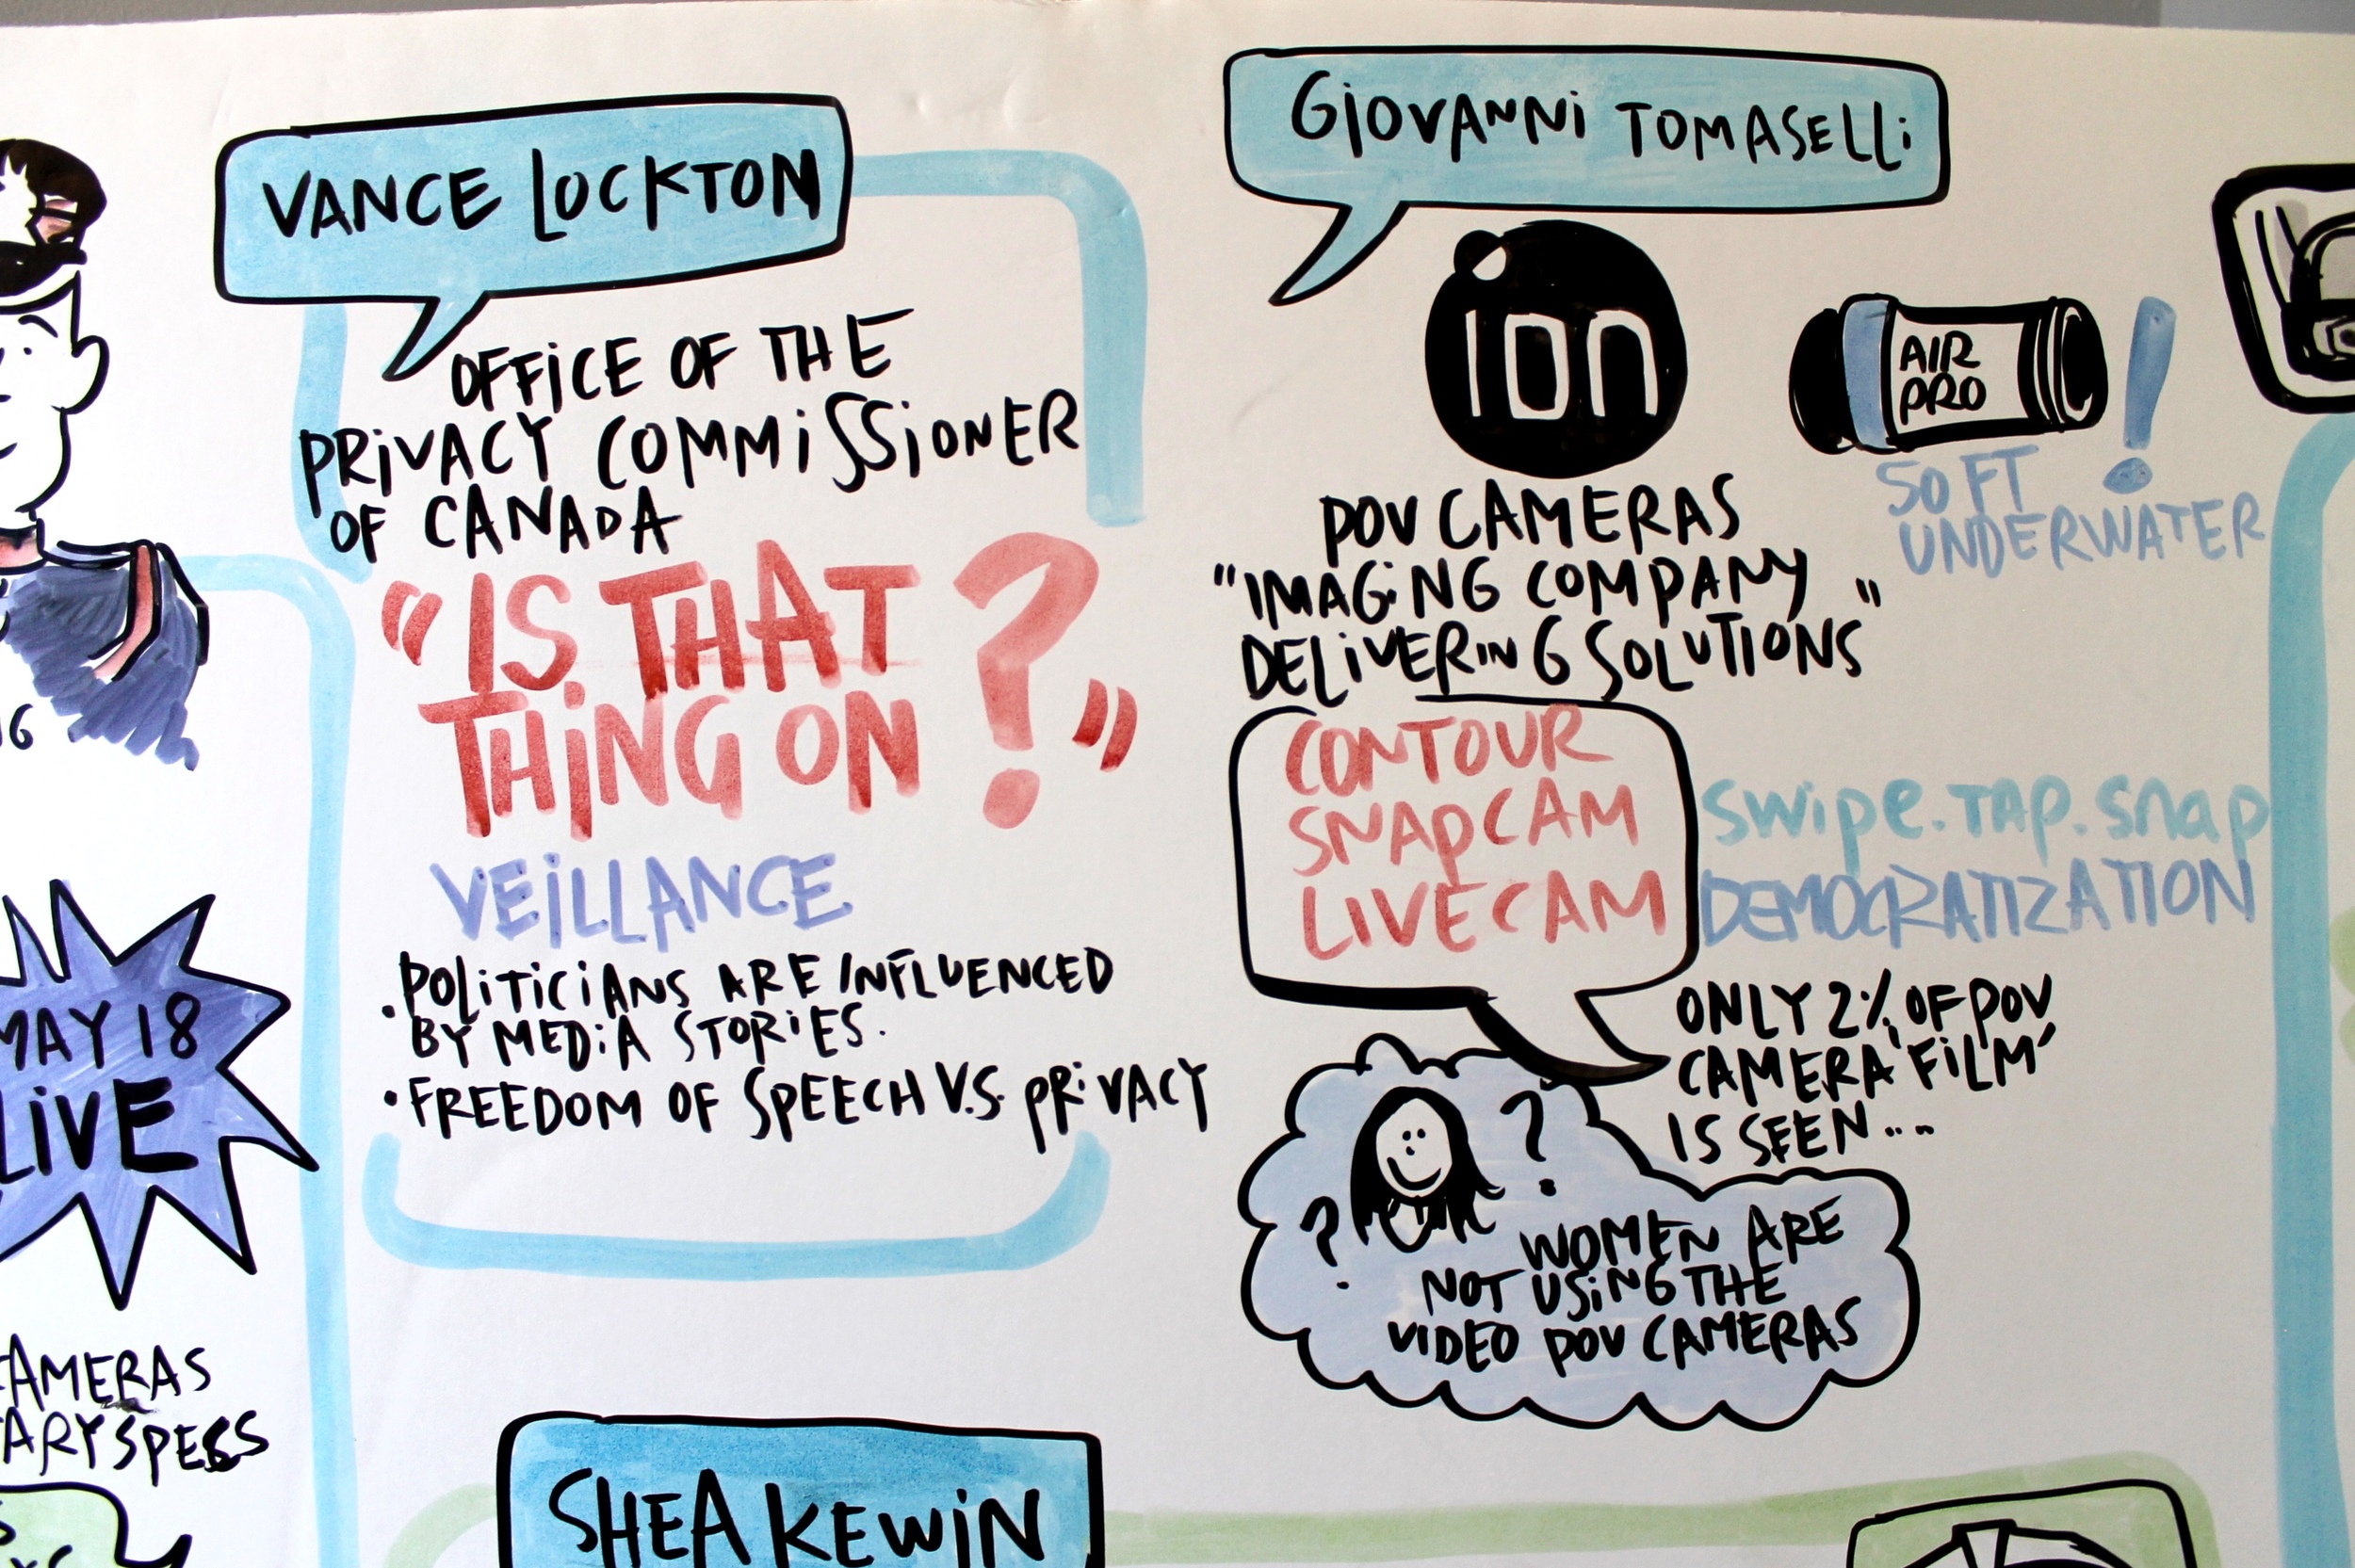 VANCE LOCKTON
OFFICE OF THE
PRIVACY COMMISSIONER
OF CANADA
"IS THAT
THING ON?"
VEILLANCE
• POLITICIANS ARE INFLUENCED
BY MEDIA STORIES.
• FREEDOM OF SPEECH V.S. PRIVACY
GIOVANNI TOMASELLI
ion
AIR
PRO
SOFT
UNDERWATER!
POV CAMERAS
"IMAGING COMPANY
DELIVERING SOLUTIONS"
CONTOUR
SNAPCAM
LIVECAM
SWIPE.TAP.SNAP
DEMOCRATIZATION
ONLY 2% OF POV
CAMERA 'FILM'
IS SEEN...
? ?
WOMEN ARE
NOT USING THE
VIDEO POV CAMERAS
MAY 18
LIVE
CAMERAS
ARY SPECS
SHEA KEWIN